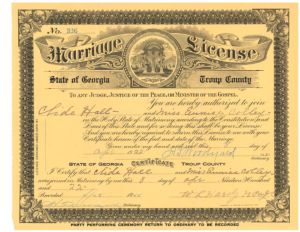 No. 236
Marriage License
State of Georgia Troup County
TO ANY JUDGE, JUSTICE OF THE PEACE, OR MINISTER OF THE GOSPEL.
You are hereby authorized to join
Clide Hall and Miss Annie Colley
in the Holy State of Matrimony according to the Constitution and
Laws of this State and for so doing this shall be your sufficient License.
And you are hereby required to return this License to me with your
Certificate hereon of fact and date of the Marriage.
Given under my hand and seal this
STATE OF GEORGIA Certificate TROUP COUNTY
I Certify that Clide Hall and Miss Annie Colley
were joined in Matrimony by me this 8 day of Nineteen Hundred
and 22
Recorded
PARTY PERFORMING CEREMONY RETURN TO ORDINARY TO BE RECORDED